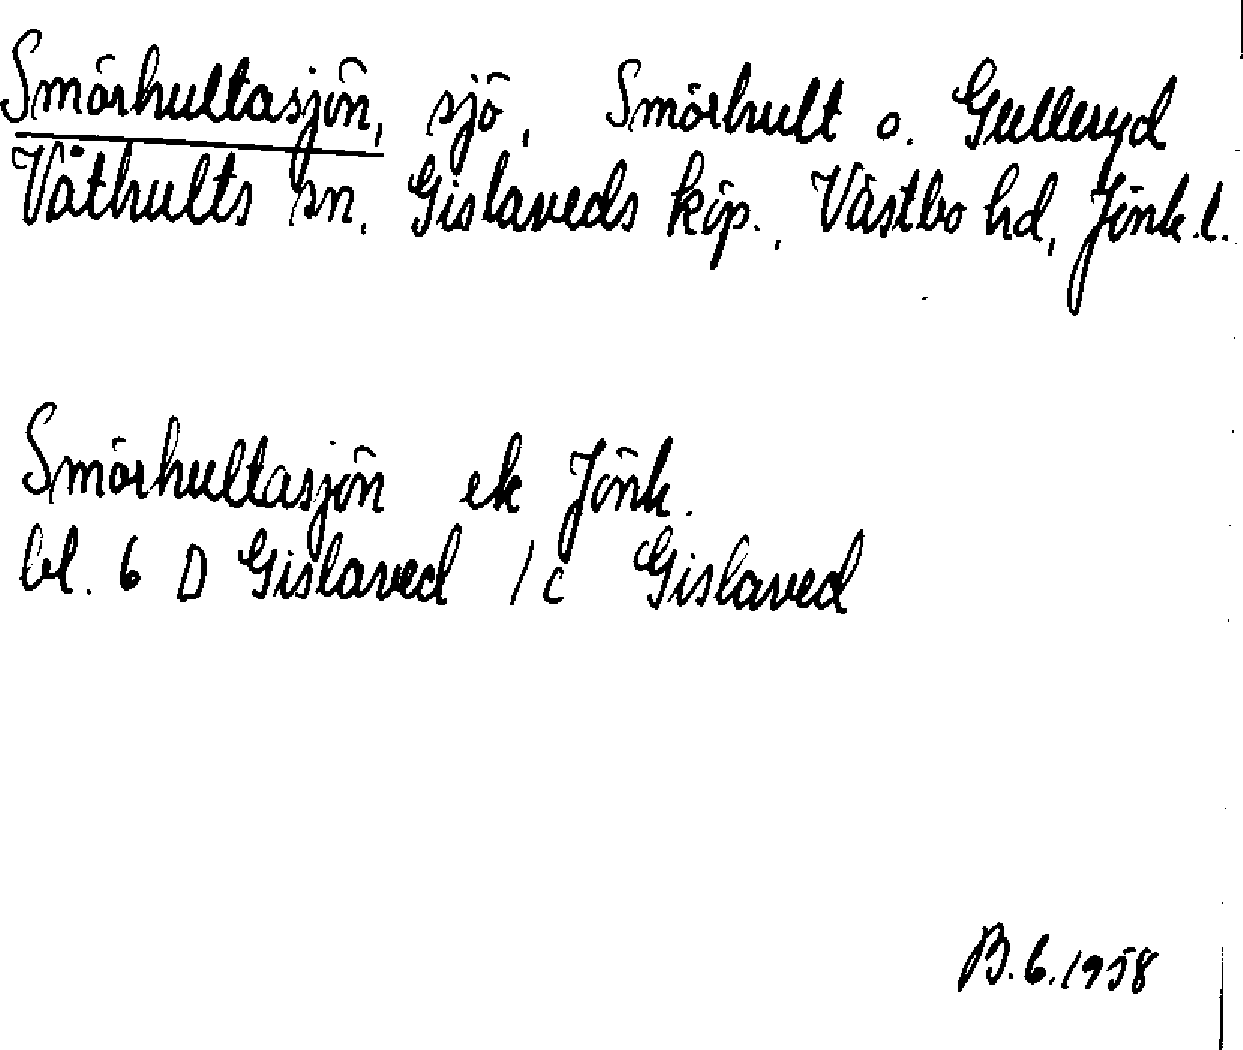 Smörhultasjön, sjö, Smörhult o. Gulleryd
Våthults sn. Gislaveds köp., Västbo hd, Jönk.l.
Smörhultasjön ek Jönk.
bl. 6 D Gislaved 1c Gislaved
B.6.1958